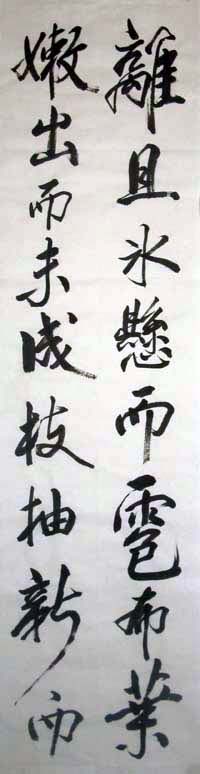 離且冰懸而雹布葉
嫩出而未成枝抽新而